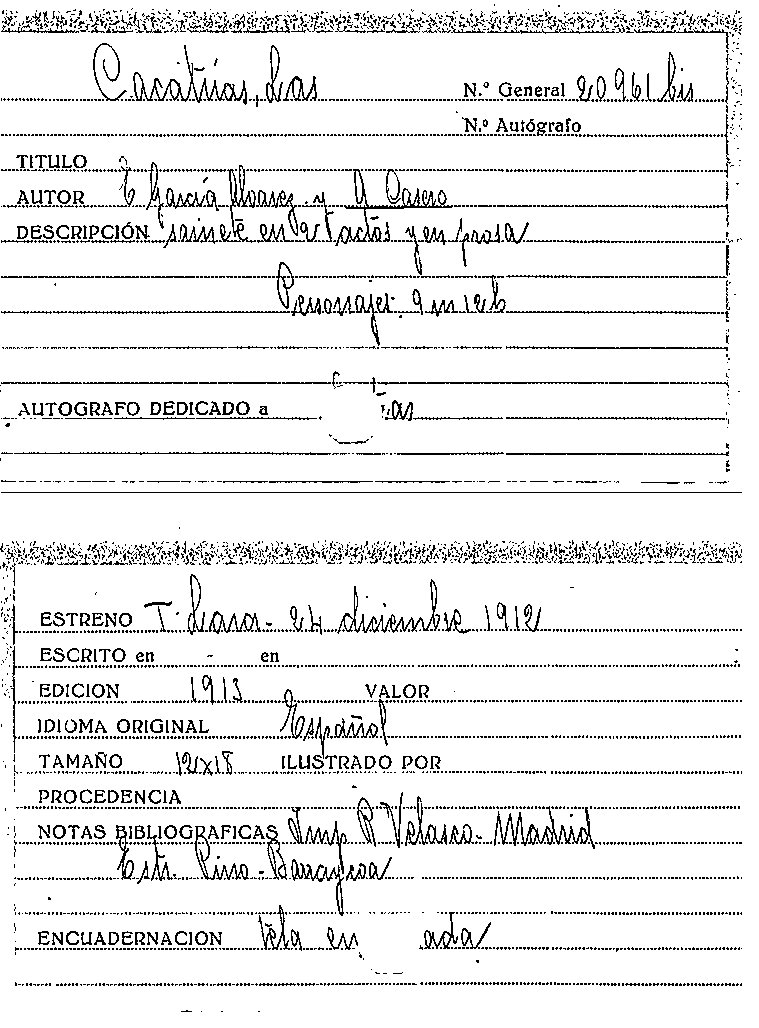 Cacatúas, Las
N.º General 20961 bis
N.º Autógrafo
TITULO
AUTOR E García Alvarez y A Casero
DESCRIPCIÓN sainete en 2 actos y en prosa
Personajes. 9 m 12 h
AUTOGRAFO DEDICADO a
ESTRENO T. Lara - 24 diciembre 1912
ESCRITO en - en
EDICION 1913 VALOR
IDIOMA ORIGINAL Español
TAMAÑO 12x18 ILUSTRADO POR
PROCEDENCIA
NOTAS BIBLIOGRAFICAS Imp R Velasco - Madrid
Estr. Pino - Barraycoa
ENCUADERNACION tela en